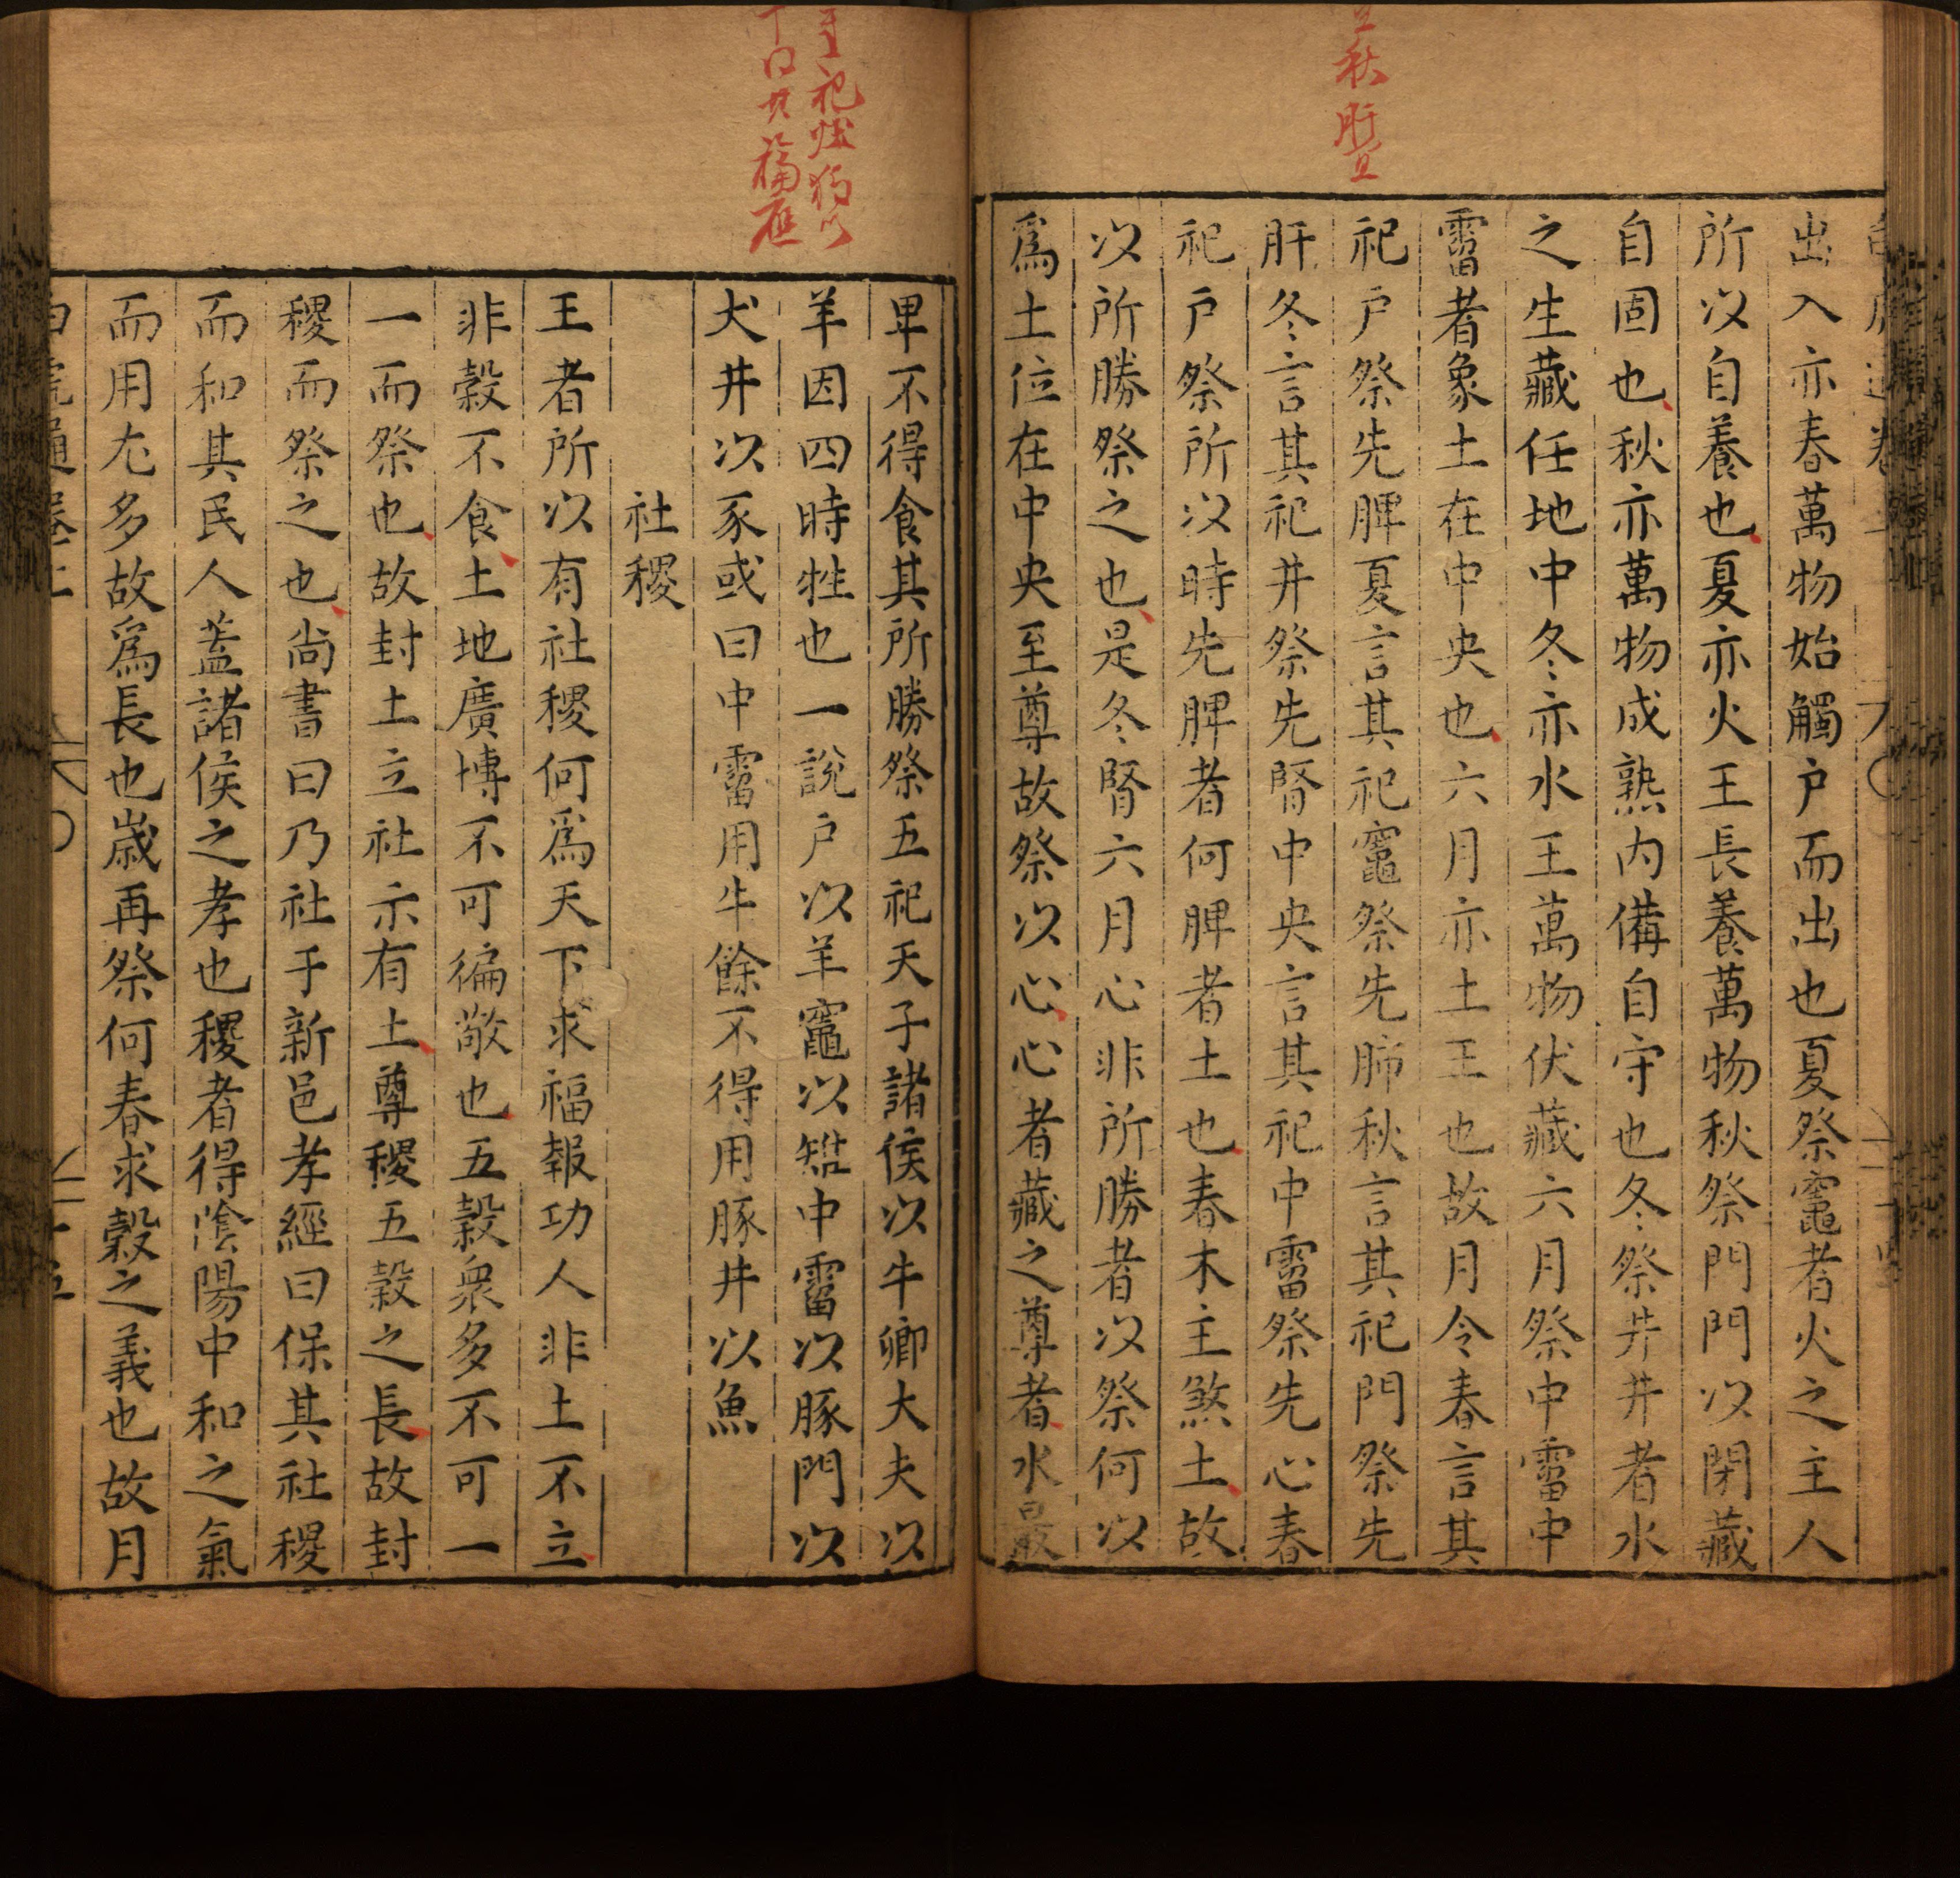 秋肝
出入亦春萬物始觸户而出也夏祭竈者火之主人
所以自養也夏亦火王長養萬物秋祭門門以閉藏
自固也秋亦萬物成熟内備自守也冬祭井井者水
之生藏任地中冬亦水王萬物伏藏六月祭中霤中
霤者象土在中央也六月亦土王也故月令春言其
祀户祭先脾夏言其祀竈祭先肺秋言其祀門祭先
肝冬言其祀井祭先腎中央言其祀中霤祭先心春
祀户祭所以時先脾者何脾者土也春木主煞土故
以所勝祭之也是冬腎六月心非所勝者以祭何以
爲土位在中央至尊故祭以心心者藏之尊者水最
祀
福應
卑不得食其所勝祭五祀天子諸侯以牛卿大夫以
羊因四時牲也一說户以羊竈以雞中霤以豚門以
犬井以豕或曰中霤用牛餘不得用豚井以魚
社稷
王者所以有社稷何爲天下求福報功人非土不立
非穀不食土地廣博不可徧敬也五穀衆多不可一
一而祭也故封土立社示有土尊稷五穀之長故封
稷而祭之也尚書曰乃社于新邑孝經曰保其社稷
而和其民人蓋諸侯之孝也稷者得陰陽中和之氣
而用尤多故爲長也歲再祭何春求穀之義也故月